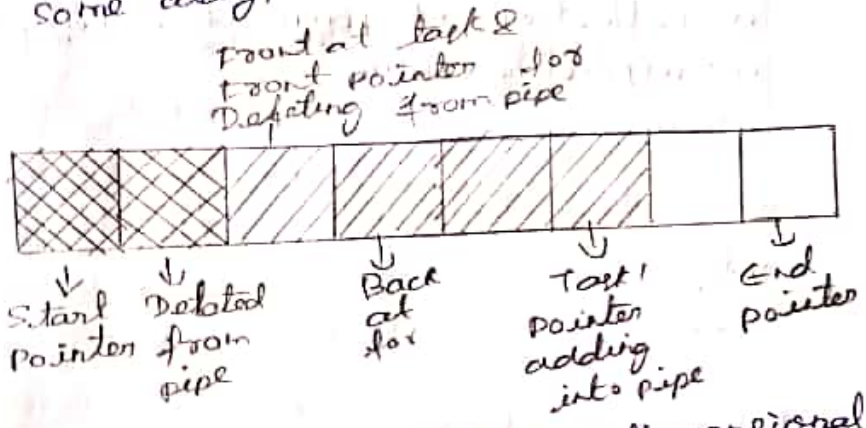 Some
Front at task &
Front pointer for
Deleting from pipe
Start
Pointer
Deleted
from
pipe
Back
at
for
Task 1
Pointer
adding
into pipe
End
pointer